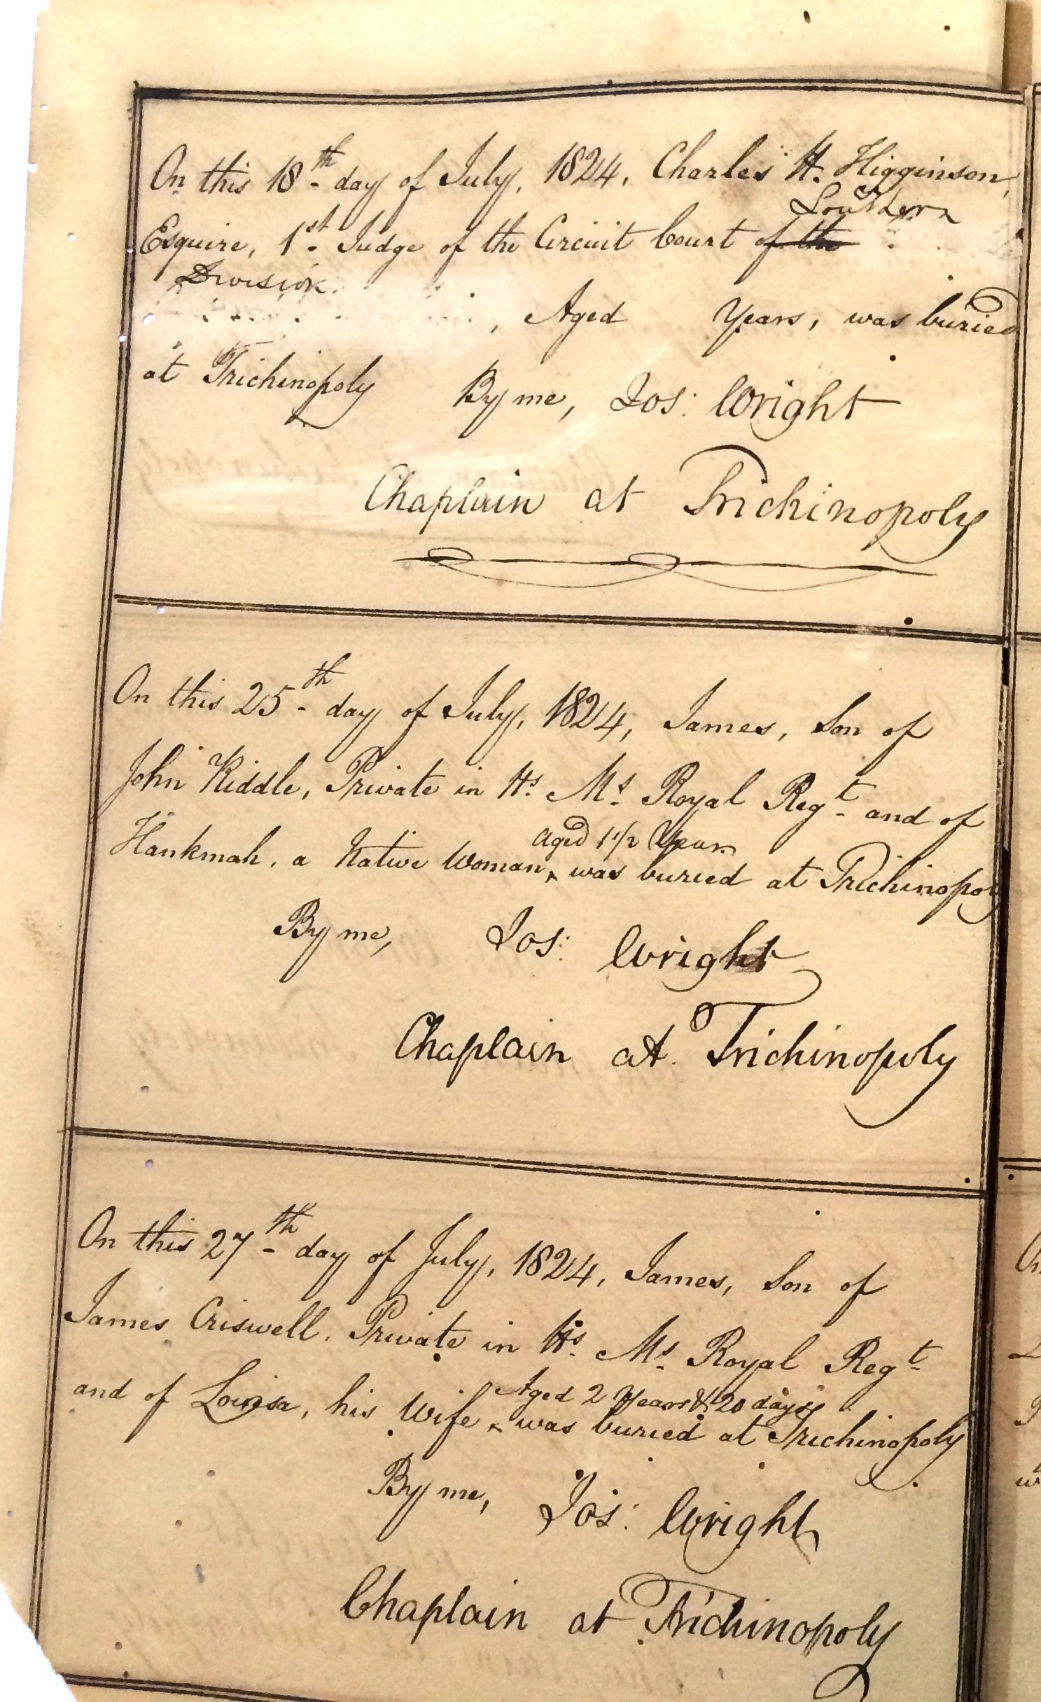 On this 18th day of July, 1824, Charles H. Higginson,
Southern
Esquire, 1st Judge of the Circuit Court of the
Division
, Aged Years, was buried
at Trichinopoly By me, Jos: Wright
Chaplain at Trichinopoly
On this 25th day of July, 1824, James, Son of
John Kiddle, Private in Hs. Ms. Royal Regt and of
aged 1 1/2 Year
Hankmah, a Native Woman, was buried at Trichinopoly
By me, Jos: Wright
Chaplain at Trichinopoly
On this 27th day of July, 1824, James, Son of
James Criswell, Private in Hs. Ms. Royal Regt
Aged 2 Years & 20 days
and of Louisa, his Wife, was buried at Trichinopoly
By me, Jos: Wright
Chaplain at Trichinopoly